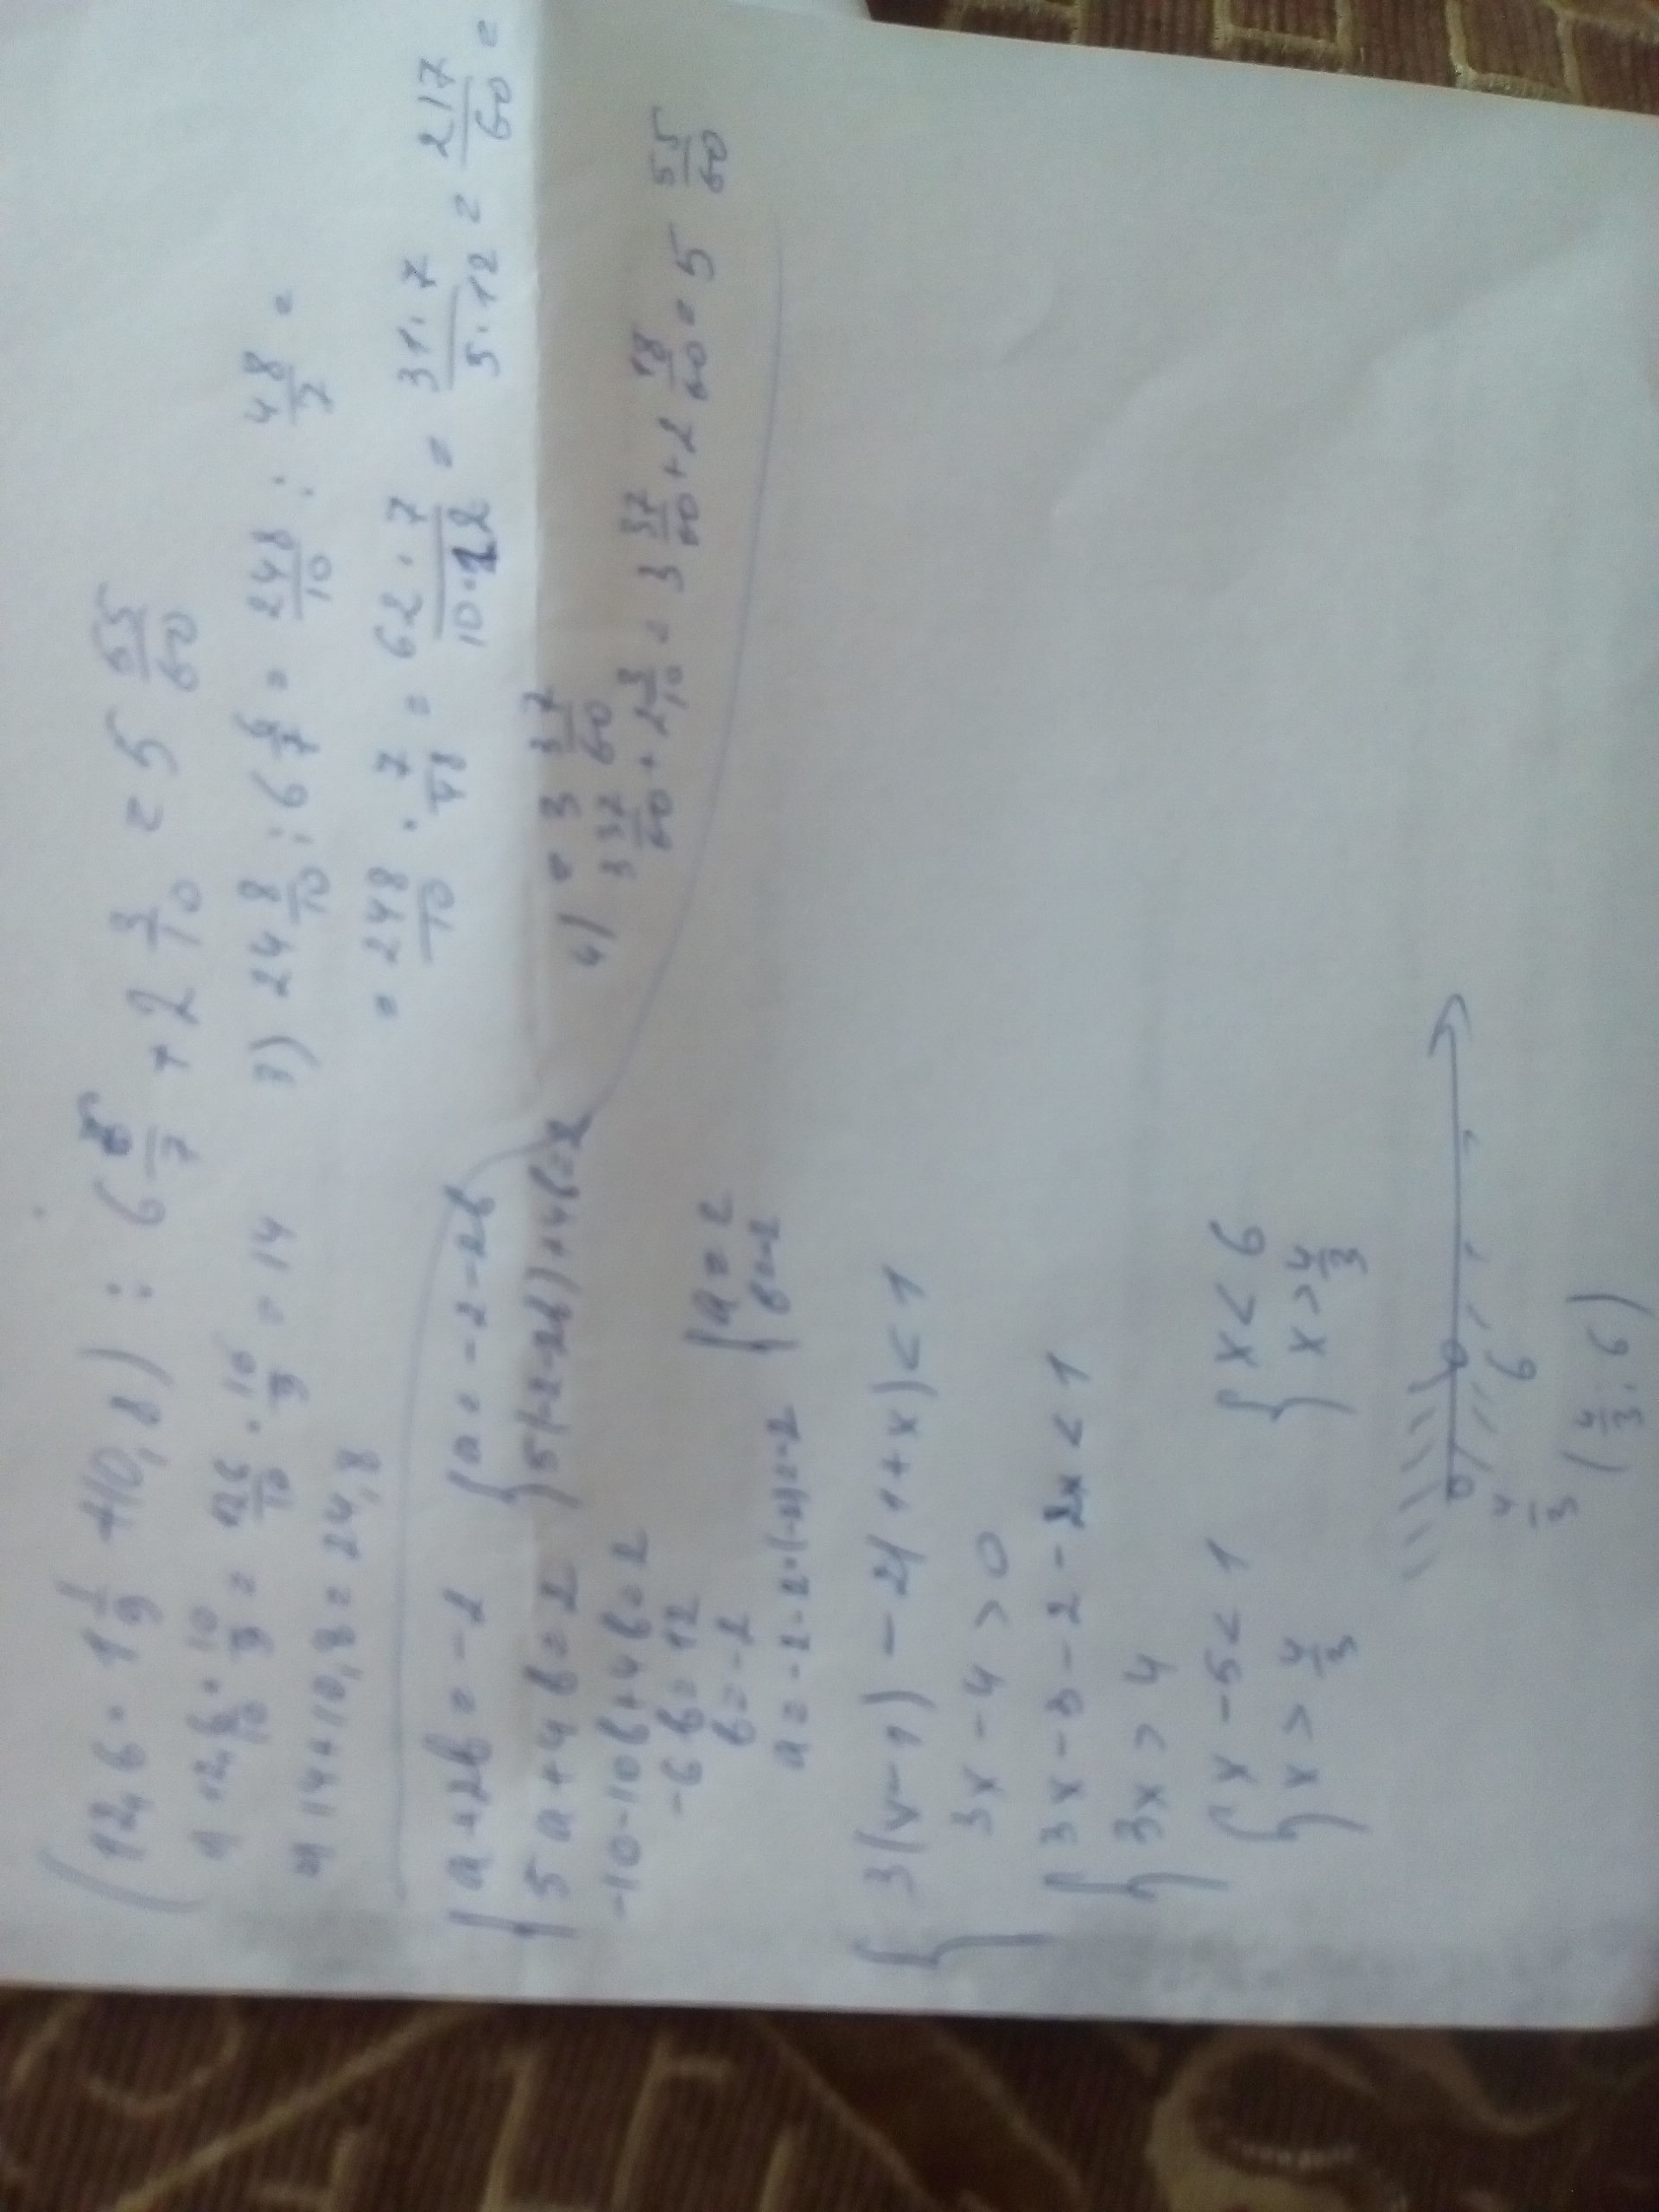 (12,6 · 1 1/9 + 10,8) : 6 6/7 + 2 3/10 = 5 55/60
1) 12,6 · 10/9 = 126/10 · 10/9 = 14
2) 14 + 10,8 = 24,8
3) 24 8/10 : 6 6/7 = 248/10 : 48/7 =
= 248/10 · 7/48 = 62 · 7/10 · 12 = 31 · 7/5 · 12 = 217/60 =
= 3 37/60
4) 3 37/60 + 2 3/10 = 3 37/60 + 2 18/60 = 5 55/60
{ a + 2b = -2
{ 5a + 4b = 2
{ a = -2 - 2b
{ 5(-2-2b) + 4b = 2
-10 - 10b + 4b = 2
-6b = 12
b = -2
a = -2 - 2 · (-2) = 2
{ a = 2
{ b = -2
{ 3(x-1) - 2(1+x) < 1
3x - 4 > 0
{ 3x - 3 - 2 - 2x < 1
{ 3x > 4
{ x - 5 < 1
{ x > 4/3
{ x < 6
{ x > 4/3
4/3 6
(4/3; 6)